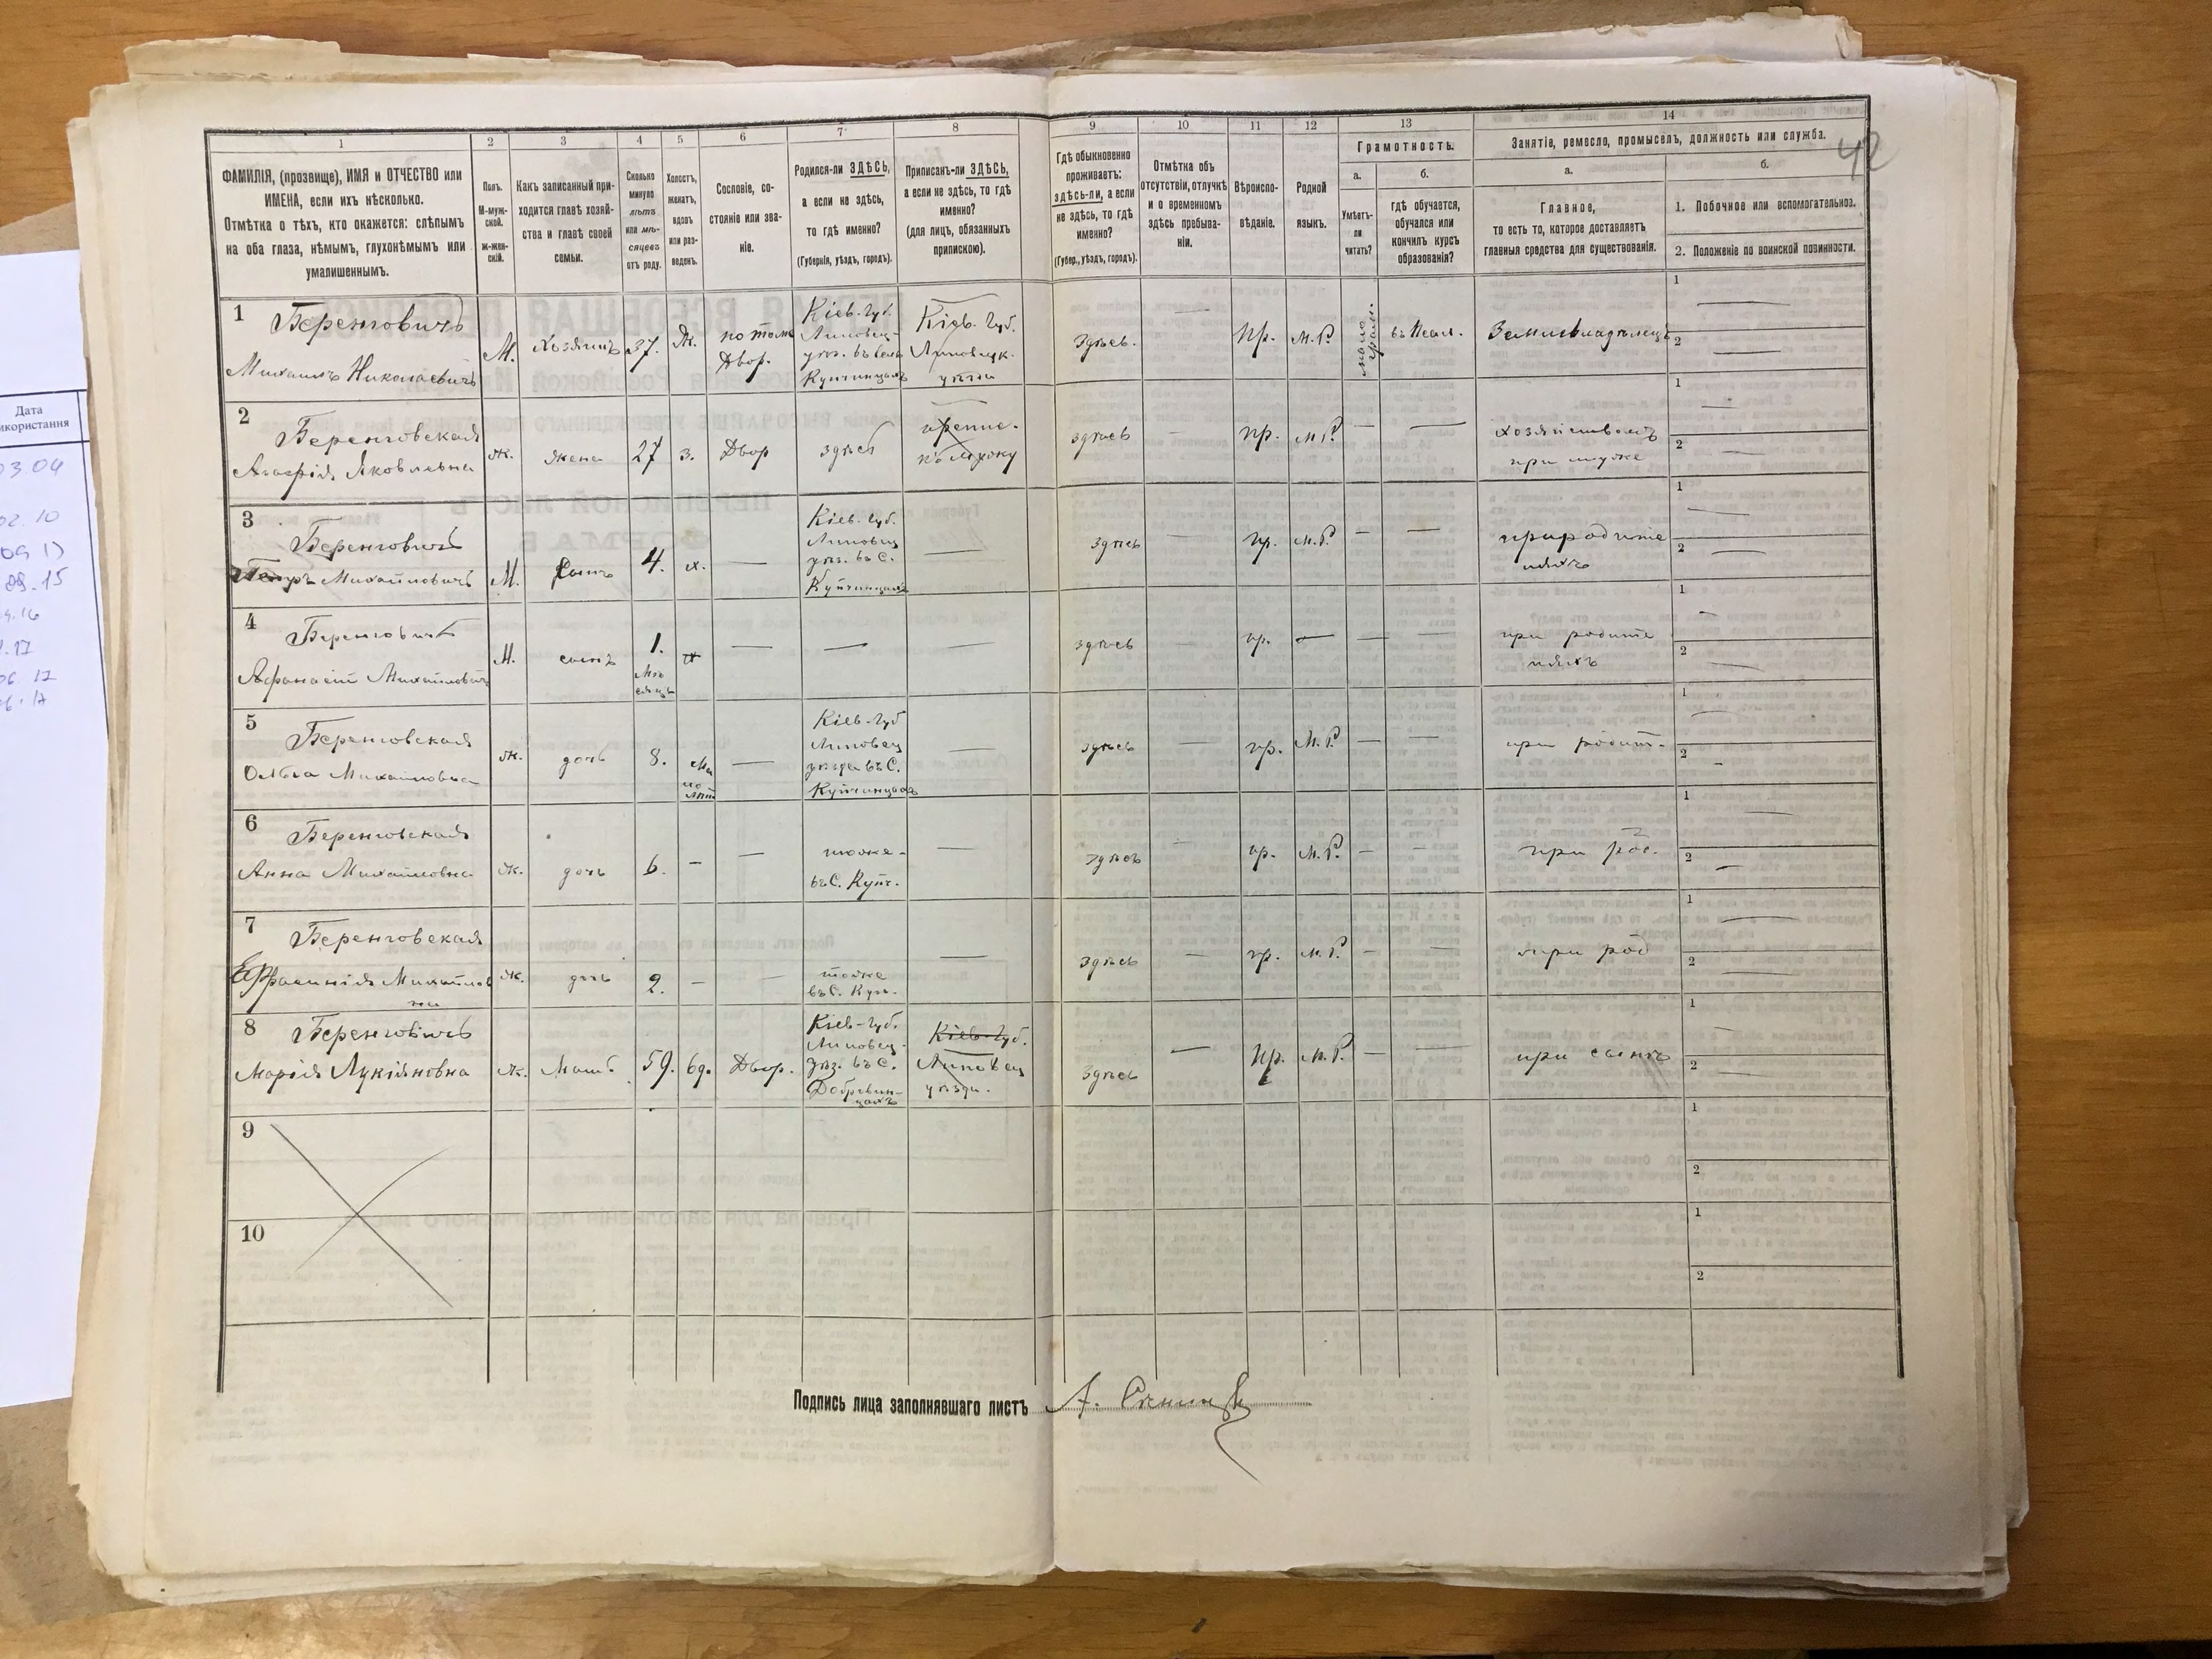 42
1
2
3
4
5
6
7
8
9
10
11
12
13
14
ФАМИЛІЯ, (прозвище), ИМЯ и ОТЧЕСТВО или
ИМЕНА, если ихъ нѣсколько.
Отмѣтка о тѣхъ, кто окажется: слѣпымъ
на оба глаза, нѣмымъ, глухонѣмымъ или
умалишеннымъ.
Полъ.
М-муж-
ской.
ж-жен-
скій.
Какъ записанный при-
ходится главѣ хозяй-
ства и главѣ своей
семьи.
Сколько
минуло
лѣтъ
или мѣ-
сяцевъ
отъ роду.
Холостъ,
женатъ,
вдовъ
или раз-
веденъ.
Сословіе, со-
стояніе или зва-
ніе.
Родился-ли ЗДѢСЬ,
а если не здѣсь,
то гдѣ именно?
(Губернія, уѣздъ, городъ).
Приписанъ-ли ЗДѢСЬ,
а если не здѣсь, то гдѣ
именно?
(для лицъ, обязанныхъ
припискою).
Гдѣ обыкновенно
проживаетъ:
здѣсь-ли, а если
не здѣсь, то гдѣ
именно?
(Губер., уѣздъ, городъ).
Отмѣтка объ
отсутствіи, отлучкѣ
и о временномъ
здѣсь пребыва-
ніи.
Вѣроиспо-
вѣданіе.
Родной
языкъ.
Грамотность.
а.
Умѣетъ-
ли
читать?
б.
гдѣ обучается,
обучался или
кончилъ курсъ
образованія?
Занятіе, ремесло, промыселъ, должность или служба.
а.
Главное,
то есть то, которое доставляетъ
главныя средства для существованія.
б.
1. Побочное или вспомогательное.
2. Положеніе по воинской повинности.
1
Беренговичъ
Михаилъ Николаевичъ
М.
Хозяинъ
37.
Ж.
потом.
Двор.
Кіев. губ.
Липовец.
уѣз. въ селѣ
Купчинцахъ
Кіев. Губ.
Липовецк.
уѣзда
Здѣсь.
Пр.
М.Р.
мало
грам.
Землевладѣлецъ
1
2
2
Беренговская
Агафія Яковлевна
ж.
жена
27
з.
Двор
здѣсь
къ мужу
здѣсь
пр.
М.Р.
хозяйствомъ
при мужѣ
1
2
3
Беренговичъ
Петръ Михайловичъ
М.
Сынъ
4.
х.
Кіев. губ.
Липовец
уѣз. въ С.
Купчинцахъ
здѣсь
пр.
М.Р.
при родите
ляхъ
1
2
4
Беренговичъ
Афанасій Михайловичъ
М.
сынъ
1.
мѣ
сяцъ
здѣсь
пр.
при родите
ляхъ
1
2
5
Беренговская
Ольга Михайловна
ж.
дочь
8.
Ма
ло
лѣт
Кіев. губ
Липовец
уѣзда въ С.
Купчинцахъ
здѣсь
пр.
М.Р.
при родит.
1
2
6
Беренговская
Анна Михайловна
ж.
дочь
6.
тоже
въ С. Купч.
здѣсь
пр.
М.Р.
при род.
1
2
7
Беренговская
Ефросинія Михайлов
на
ж.
дочь
2.
тоже
въ С. Куп.
здѣсь
пр.
М.Р.
при род
1
2
8
Беренговичъ
Марія Лукіяновна
ж.
Мать
59.
вд.
Двор.
Кіев-губ.
Липовец.
уѣз. въ С.
Добровин-
цахъ
Кіев-Губ.
Липовец
уѣзда.
здѣсь
Пр.
М.Р.
при сынѣ
1
2
9
1
2
10
1
2
Подпись лица заполнявшаго листъ
Дата
икористання